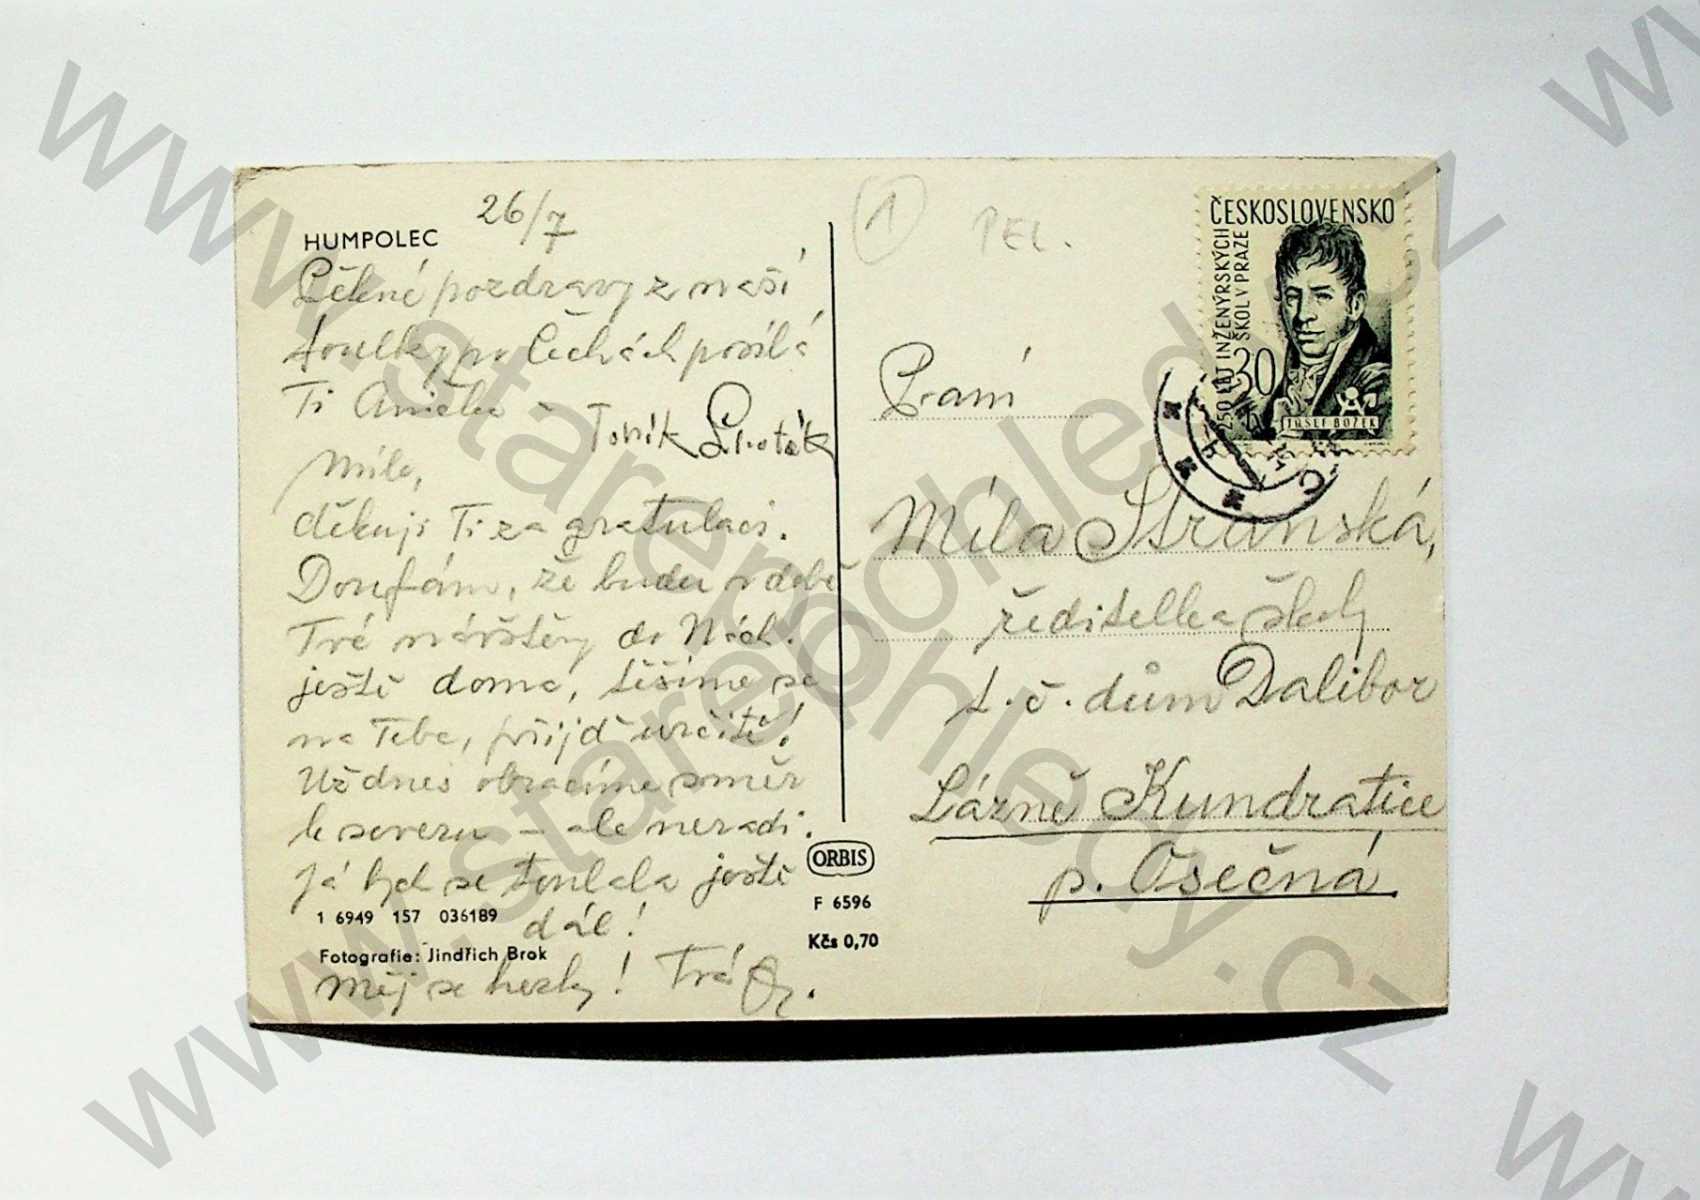 HUMPOLEC
26/7
pozdravy z naší
toulky po Čechách posílá
Ti
Toník
Mílo,
děkuji Ti za gratulaci.
Doufám, že budu v době
Tvé návštěvy do Nách.
ještě doma, těšíme se
na Tebe, přijď určitě!
Už dnes obracíme směr
k severu – ale neradi.
Já bych se toulala ještě
dál!
1 6949 157 036189
Fotografie: Jindřich Brok
Měj se hezky! Tvá
ORBIS
F 6596
Kčs 0,70
1
PEL.
ČESKOSLOVENSKO
250 LET INŽENÝRSKÝCH
ŠKOL V PRAZE
30
JOSEF BOŽEK
Paní
Míla Stránská,
ředitelka školy
t. č. dům Dalibor
Lázně Kundratice
p. Osečná
www.starepohledy.cz
www.starepohledy.cz